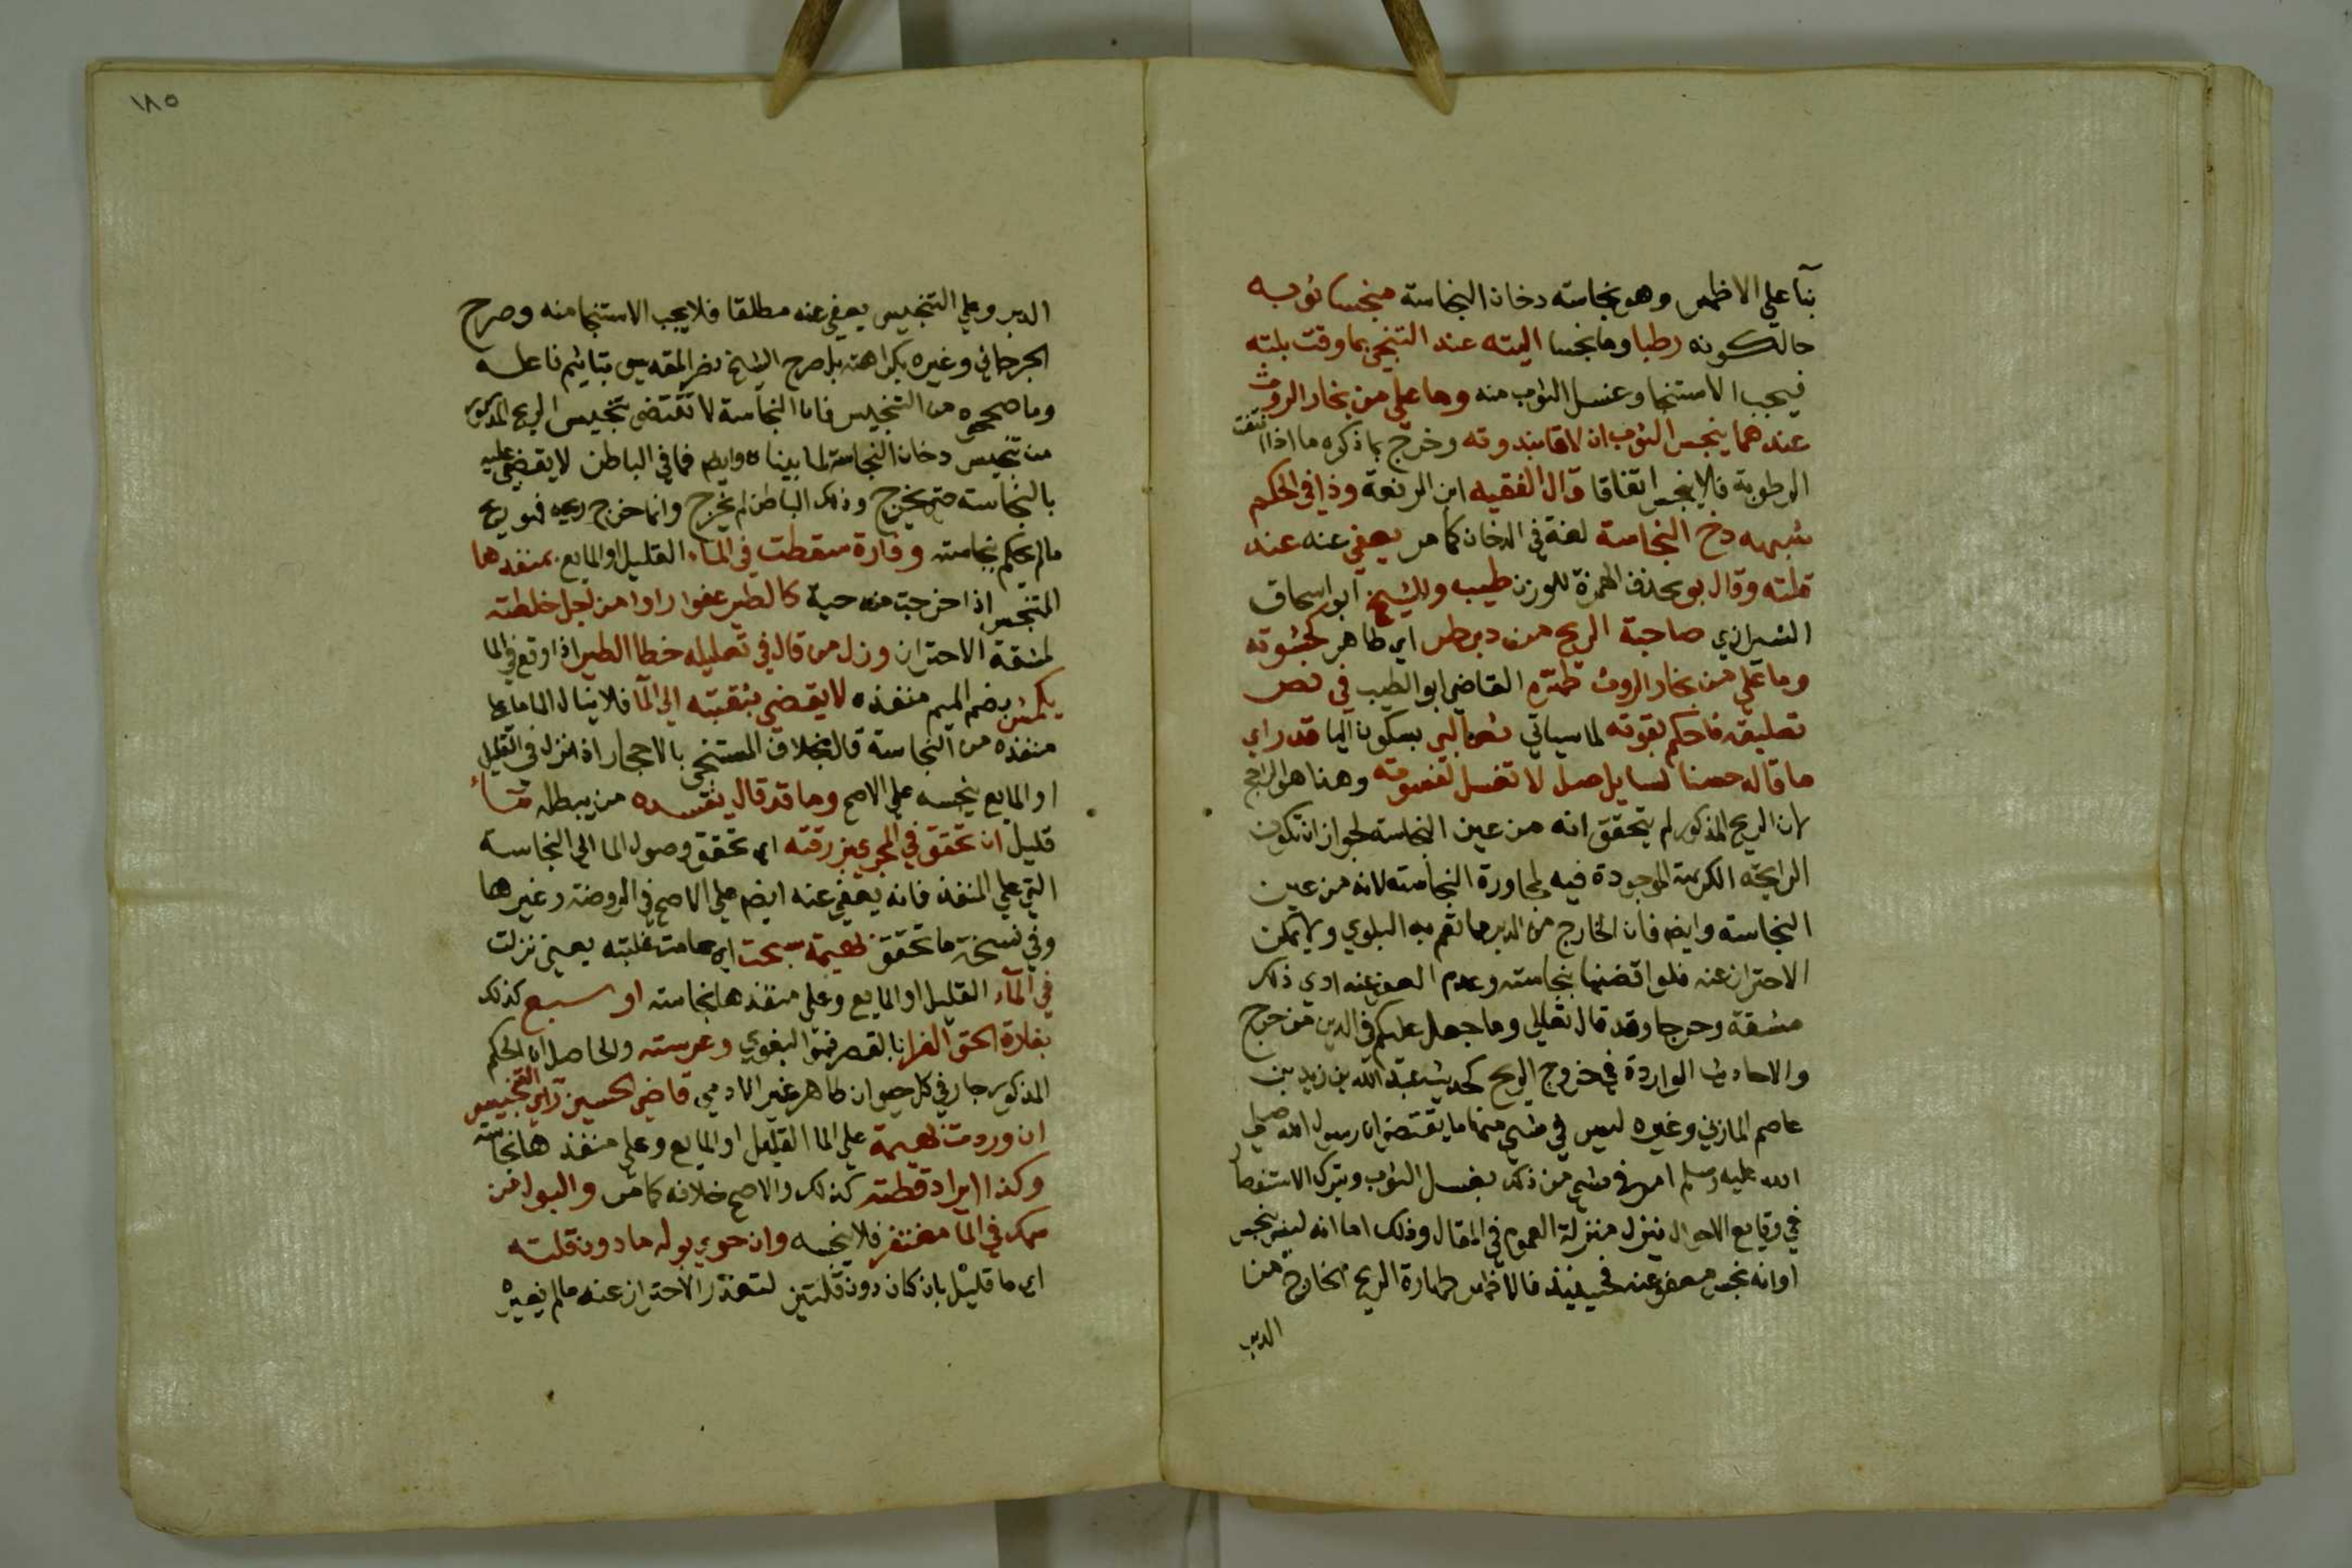 بنآ علي الاظهر وهو نجاسته دخان النجاسة منجسا ثوبه
حالكونه رطبا وما نجسا اليته عند التنجي بما وقت بلته
فيجب الاستنجا وغسل الثوب منه وما علي من بخار الروث
عندهما ينجس الثوب ان لاقا بندوته وخرج بما ذكره ما اذا انتفت
الرطوبة فلا ينجس اتفاقا قال الفقيه ابن الرفعة وذا في الحكم
شبهه دخ النجاسة لغة في الدخان كما مر يعفي عنه عند
قلته وقال بو بحذف الهمزة للوزن طيبه وللشيخ ابو اسحاق
الشيرازي صاحبة الريح من دبر طر اي طاهر كجشوته
وما علي من بخار الروث طهره القاضي ابو الطيب في نص
تعليقه فاحكم بقوته لما سياتي نصا لبي بسكون اليا قد راي
ما قاله حسنا لسايل صل لا تغسل لفسوته وهذا هو الراجح
لان الريح المذكور لم يتحقق انه من عين النجاسة لجواز ان تكون
الرايحة الكريهة الموجودة فيه لمجاورة النجاسة لا انه من عين
النجاسة وايضا فان الخارج من الدبر مما تعم به البلوي ولا يمكن
الاحتراز عنه فلو اقضينا بنجاسته وعدم العفو عنه ادي ذلك
مشقة وحرجا وقد قال تعالي وما جعل عليكم في الدين من حرج
والاحاديث الواردة في خروج الريح كحديث عبد الله بن زيد بن
عاصم المازني وغيره ليس في شي منها ما يقتضي ان رسول الله صلي
الله عليه وسلم امر في شي من ذلك بغسل الثوب وترك الاستفصال
في وقايع الاحوال ينزل منزلة العموم في المقال وذلك اما انه ليس بنجس
او انه نجس معفو عنه فحينيذ فالاظهر طهارة الريح الخارج من
الدبر
١٨٥
الدبر وعلي التنجيس يعفي عنه مطلقا فلا يجب الاستنجا منه وصرح
الجرجاني وغيره بكراهته بل صرح الشيخ نصر المقدسي بتاثيم فاعله
وما صححوه من التنجيس فان النجاسة لا تقتضي تنجيس الريح المذكور
من تنجيس دخان النجاسة لما بيناه وايضا فما في الباطن لا يقضي عليه
بالنجاسة حتي يخرج وذلك الباطن لم يخرج وانما خرج ريحه فهو ريح
مالم يحكم بنجاسته وفارة سقطت في الماء القليل او المايع بمنفدها
المتنجس اذا خرجت منه حية كالطير عفوا راوا من لجل خلطته
لمشقة الاحتراز وزل من قال في تعليله خطا الطير اذا وقع في الما
يكمش بضم الميم منفذه لا يقضي بثقبته الي الما فلا ينال الما ما علي
منفذه من النجاسة قال بخلاف المستنجي بالاحجار اذا نزل في القليل
او المايع ينجسه علي الاصح وما قد قال يفسده من يبطله مساء
قليل ان تحقق في المجري بزرقته اي تحقق وصول الما الي النجاسة
التي علي المنفذ فانه يعفي عنه ايضا علي الاصح في الروضة وغيرها
وفي نسخة ما تحقق بهيمة سبحت اي عامت غلبته يعني نزلت
في الماء القليل او المايع وعلي منفذها نجاسته او سبع كذلك
بفارة الحق الفرا بالقصر فهو البغوي وعرسته والحاصل ان الحكم
المذكور جار في كل حيوان طاهر غير الادمي قاضي الحسين راي التنجيس
ان وردت بهيمة علي الما القليل او المايع وعلي منفذها نجاسته
وكذا ايراد قطته كذلك والاصح خلافه كما مر والبول من
سمك في الما مغتفر فلا ينجسه وان حوي بوله ما دون قلته
اي ما قليل بان كان دون قلتين لتعذر الاحتراز عنه مالم يغيره